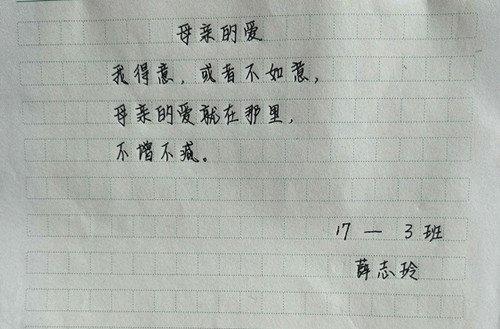 母亲的爱
我得意，或者不如意，
母亲的爱就在那里，
不增不减。
17 — 3班
薛志玲